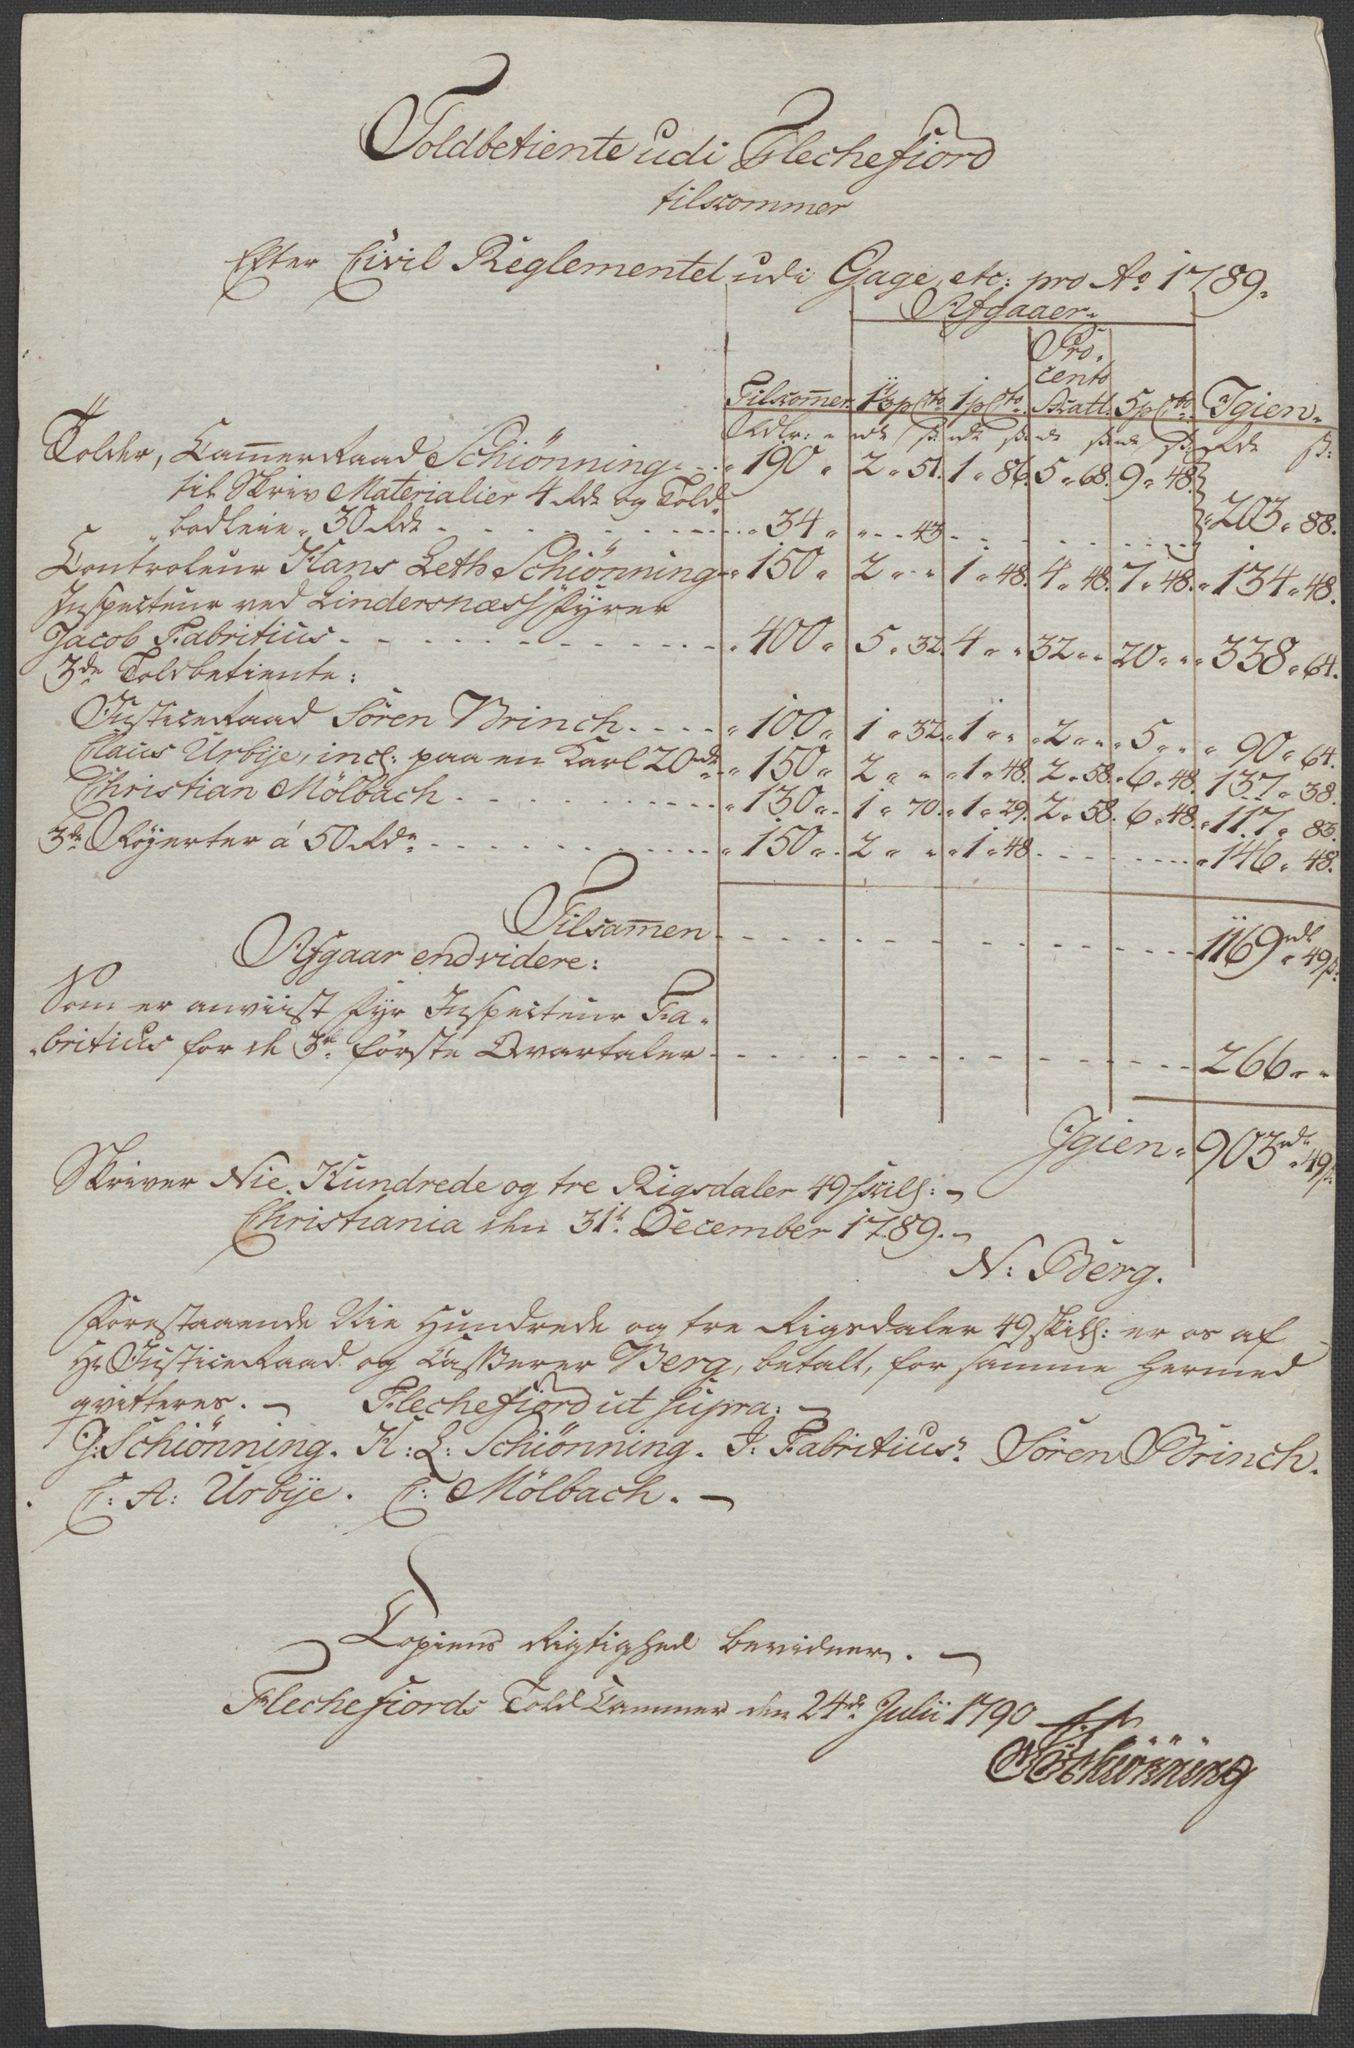 Toldbetiente udi Flechefiord
tilkommer
Efter Civil Reglementet udi Gage, etc: pro Ao 1789.
Afgaaer.
Pro-
cento
Tilkommer 1⅓ pCto 1 pCto Skatt. 5 pCto Igien.
Rdlr: rdr sk rdr sk rdr sk rdr sk Rdr sk:
Tolder, CammerRaad Schiönning 190 " 2 " 51. 1 " 86. 5 " 68. 9 " 48.
til Skriv Materialier 4 Rdr og Told-
bodleie 30 Rdr 34 " " 43 203 " 88.
Controleur Hans Leth Schiönning 150 " 2 " " 1 " 48. 4 " 48. 7 " 48. 134 " 48.
Inspecteur ved Lindersnæs Fyrer
Jacob Fabritius 400 " 5 " 32. 4 " " 32 " " 20 " " 338 " 64.
3de Toldbetiente:
JusticeRaad Sören Brinch 100 " 1 " 32. 1 " " 2 " " 5 " " 90 " 64.
Claus Urbye, incl: paa en Karl 20 rdr 150 " 2 " " 1 " 48. 2 " 58. 6 " 48. 137 " 38.
Christian Mölbach 130 " 1 " 70. 1 " 29. 2 " 58. 6 " 48. 117 " 83.
3de Röyerter á 50 Rdr 150 " 2 " " 1 " 48 146 " 48.
Tilsamen 1169 rdr 49 s:
Afgaar endvidere:
Som er anviist Fyr Inspecteur Fa-
britius for de 3de förste Qvartaler 266 " "
Igien 903 rdr 49 s:
Skriver Nie Hundrede og tre Rigsdaler 49 skill:
Christiania den 31te December 1789.
N: Berg.
Forestaaende Nie Hundrede og tre Rigsdaler 49 skill: er os af
Hr JusticeRaad og Casserer Berg, betalt, for samme hermed
qvitteres. Flechefiord ut supra.
J: Schiönning. H: L: Schiönning. J: Fabritius. Sören Brinch.
C: A: Urbye. C: Mölbach.
Copiens Rigtighed bevidner.
Flechefiords Told Cammer den 24de Julii 1790
Schiönning